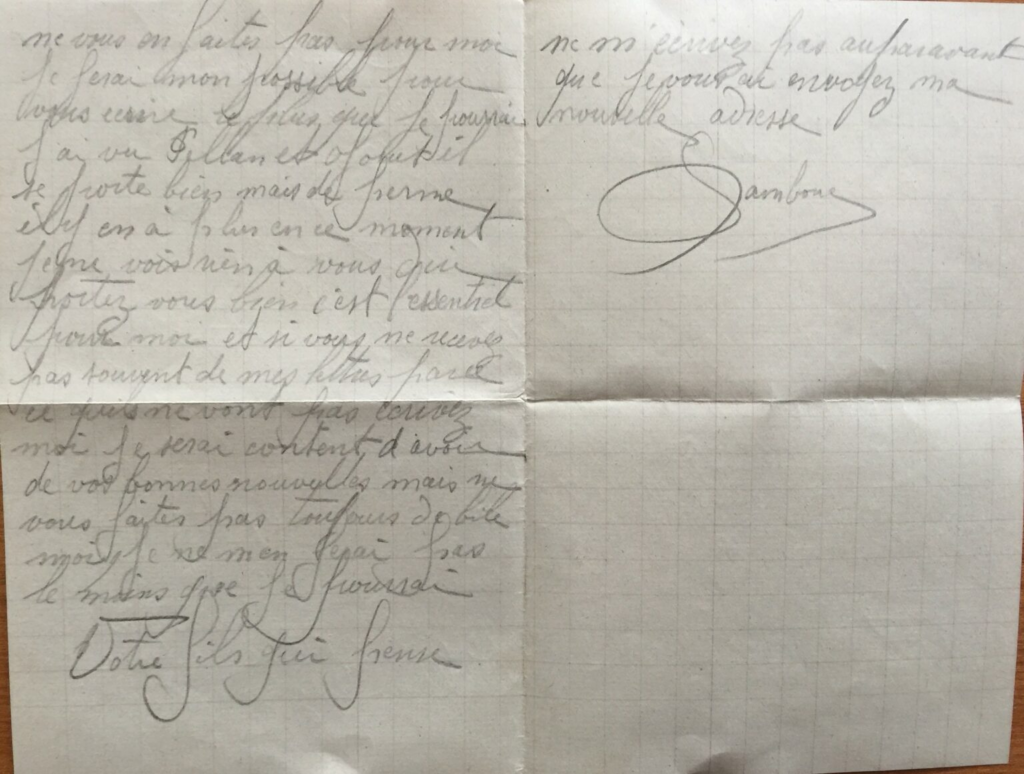 ne vous en faites pas pour moi
je ferai mon possible pour
vous écrire le plus que je pourrai
j'ai vu et il
se porte bien mais de
il y en à plus en ce moment
je ne vois rien à vous dire
portez vous bien c'est l'essentiel
pour moi et si vous ne recevez
pas souvent de mes lettres parce
ce qu'ils ne vont pas écrivez
moi je serai content d'avoir
de vos bonnes nouvelles mais ne
vous faites pas toujours de bile
moi je ne m'en ferai pas
le moins que je pourrai
Votre fils qui pense
ne m'écrivez pas auparavant
que je vous ai envoyez ma
nouvelle adresse